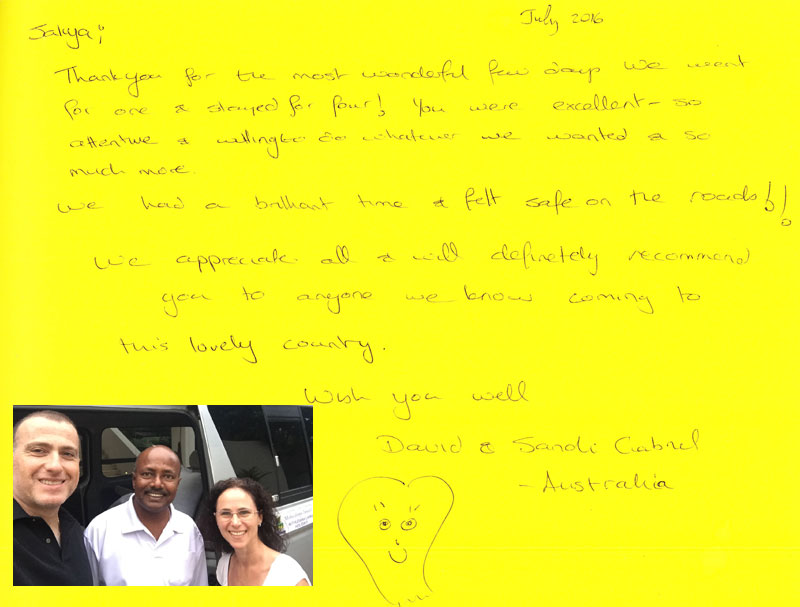 July 2016
Thank you for the most wonderful few days We went
for one & stayed for four! You were excellent - so
attentive & willing to do whatever we wanted & so
much more.
We had a brilliant time & felt safe on the roads!!
We appreciate all & will definitely recommend
you to anyone we know coming to
this lovely country.
Wish you well
David & Sandi
- Australia